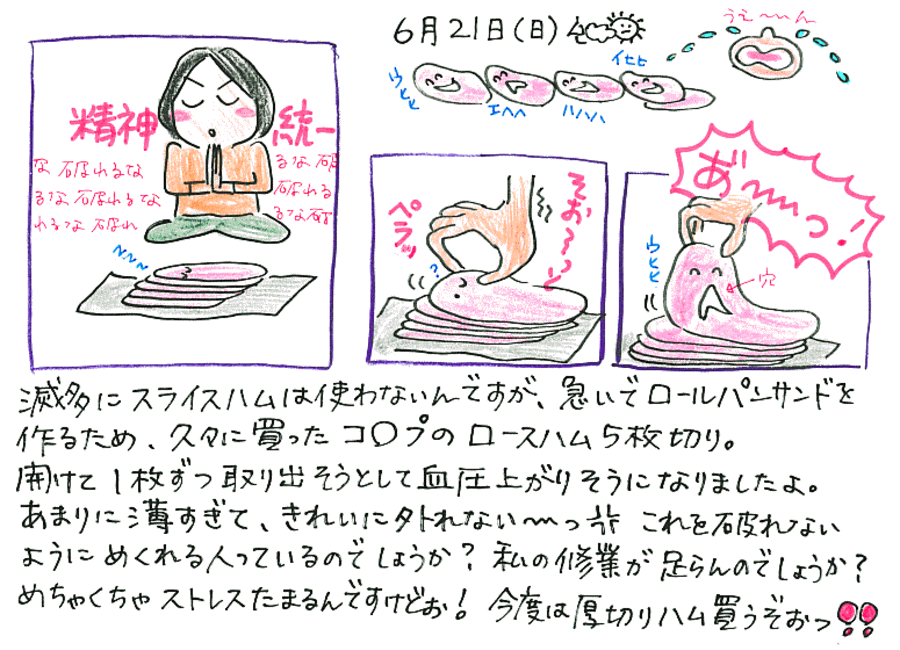 6月21日(日)
うえ〜〜ん
イヒヒ
ウヒヒ
エヘヘ
ハハハ
精神 統一
な 破れるな
るな 破れるな
れるな 破れ
るな 破
破れる
るな 破
〜〜〜
ペラッ
そお〜〜っ
?
あ゛〜〜っ!
ウヒヒ
穴
滅多に スライスハムは使わないんですが、急いでロールパンサンドを
作るため、久々に買った コ〇プの ロースハム5枚切り。
開けて 1枚ずつ取り出そうとして血圧上がりそうになりましたよ。
あまりに薄すぎて、きれいに外れない〜〜っ これを破れない
ように めくれる人っているのでしょうか? 私の修業が足らんのでしょうか?
めちゃくちゃ ストレスたまるんですけどぉ! 今度は厚切りハム買うぞおっ!!